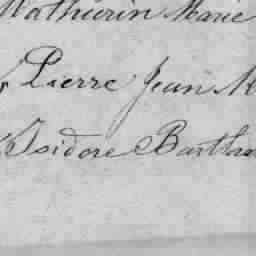 Mathurin Marie
Pierre Jean M
Isidore Barth